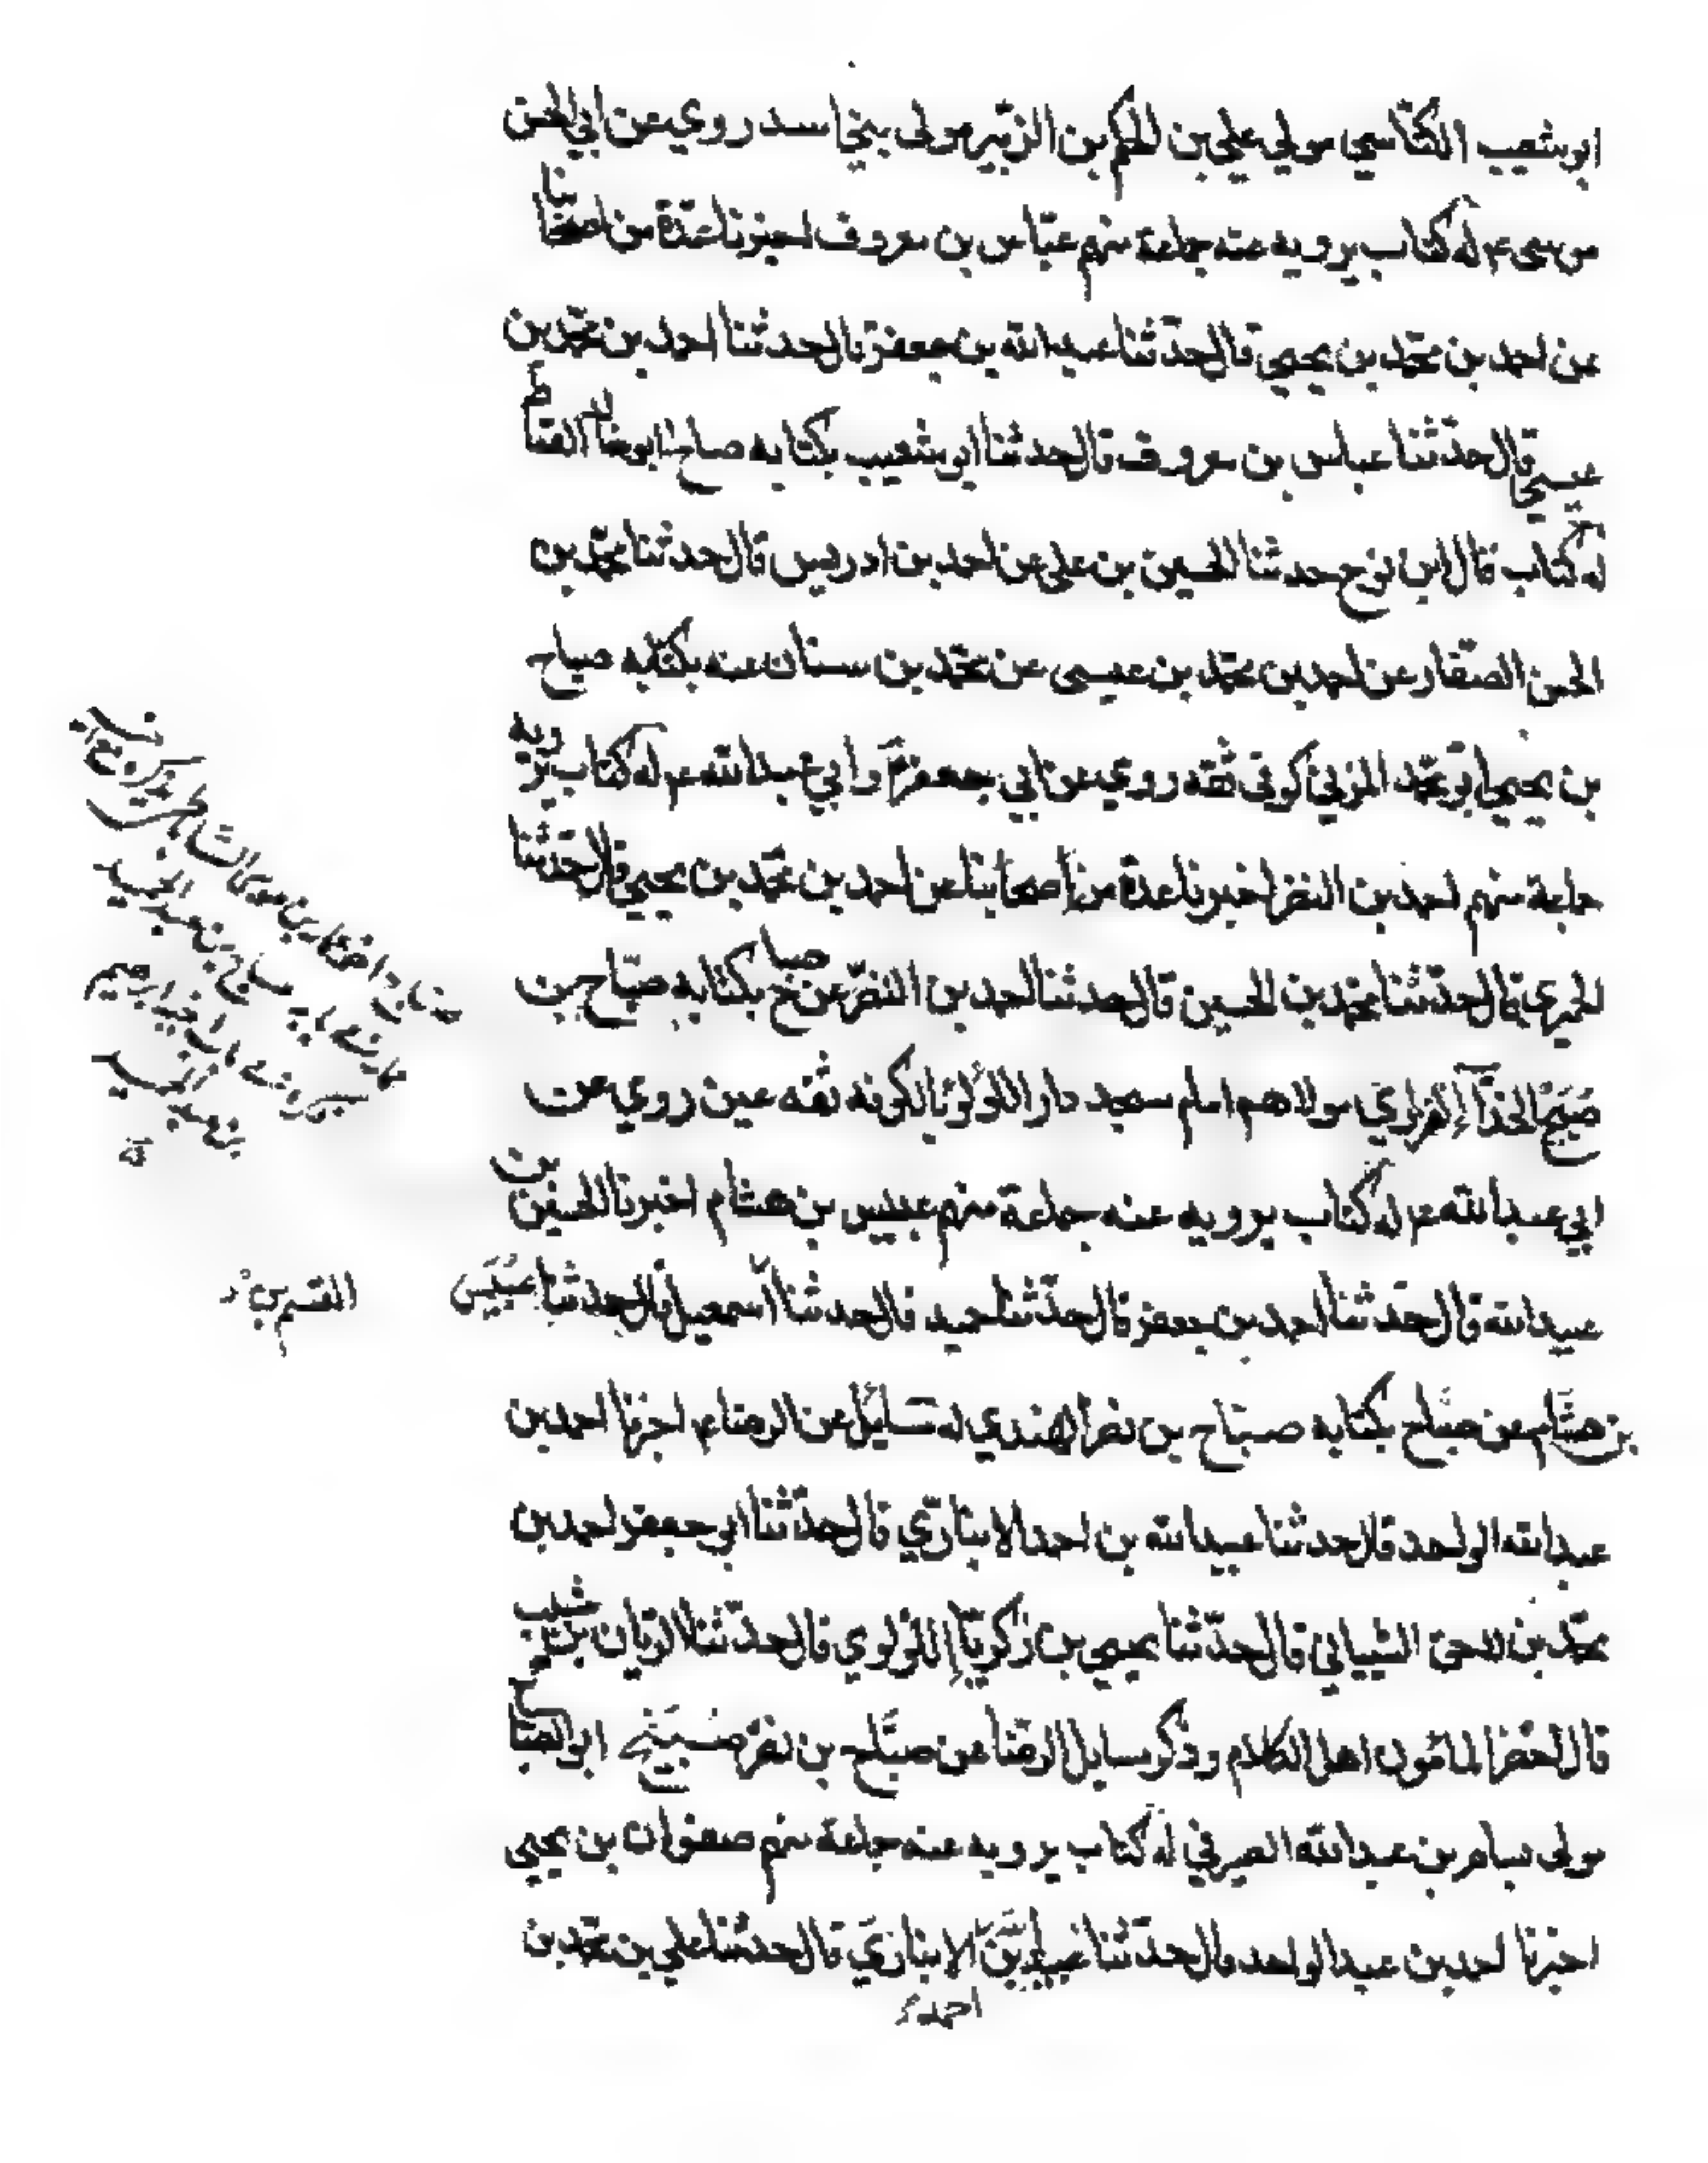 ابو شعيب الكناسي مولي علي بن الحكم بن الزبير مولى بني اسد روي عن ابي الحسن
موسى ع له كتاب يرويه عنه جماعة منهم عباس بن معروف اخبرنا عدة من اصحابنا
عن احمد بن محمد بن يحيي قال حدثنا عبد الله بن جعفر قال حدثنا احمد بن محمد بن
عيسى قال حدثنا عباس بن معروف قال حدثنا ابو شعيب بكتابه صالح ابو خالد القماط
له كتاب قال ابن نوح حدثنا الحسين بن علي عن احمد بن ادريس قال حدثنا محمد بن
الحسن الصفار عن احمد بن محمد بن عيسى عن محمد بن سنان عنه بكتابه صباح
بن يحيي ابو محمد المزني كوفي ثقه روي عن ابي جعفر وابي عبد الله ع له كتاب يرويه
جماعة منهم احمد بن النضر اخبرنا عدة من اصحابنا عن احمد بن محمد بن يحيي قال حدثنا
الحميري قال حدثنا محمد بن الحسين قال حدثنا احمد بن النضر عن صباح بكتابه صباح بن
صبيح الحذآء الفزاري مولاهم امام مسجد دار اللؤلؤ بالكوفه ثقه عين روي عن
ابي عبد الله ع له كتاب يرويه عنه جماعة منهم عبيس بن هشام اخبرنا الحسين بن
عبيد الله قال حدثنا احمد بن جعفر قال حدثنا حميد قال حدثنا اسمعيل قال حدثنا عبيس
القسم بن
بن هشام عن صباح بكتابه صباح بن نضر الهندي له مسائل عن الرضا ع اخبرنا احمد بن
عبد الله الواحد قال حدثنا عبيد الله بن احمد الانباري قال حدثنا ابو جعفر احمد بن
محمد بن لاحق الشيباني قال حدثنا يحيي بن زكريا اللؤلوي قال حدثنا الريان بن شبيب
قال احضر المامون اهل الكلام وذكر مسايل الرضا عن صباح بن نضر صبيح ابو الصباح
مولى بسام بن عبد الله الصيرفي له كتاب يرويه عنه جماعة منهم صفوان بن يحيي
اخبرنا احمد بن عبد الواحد قال حدثنا عبيد الله بن الانباري قال حدثنا علي بن محمد بن
احمد